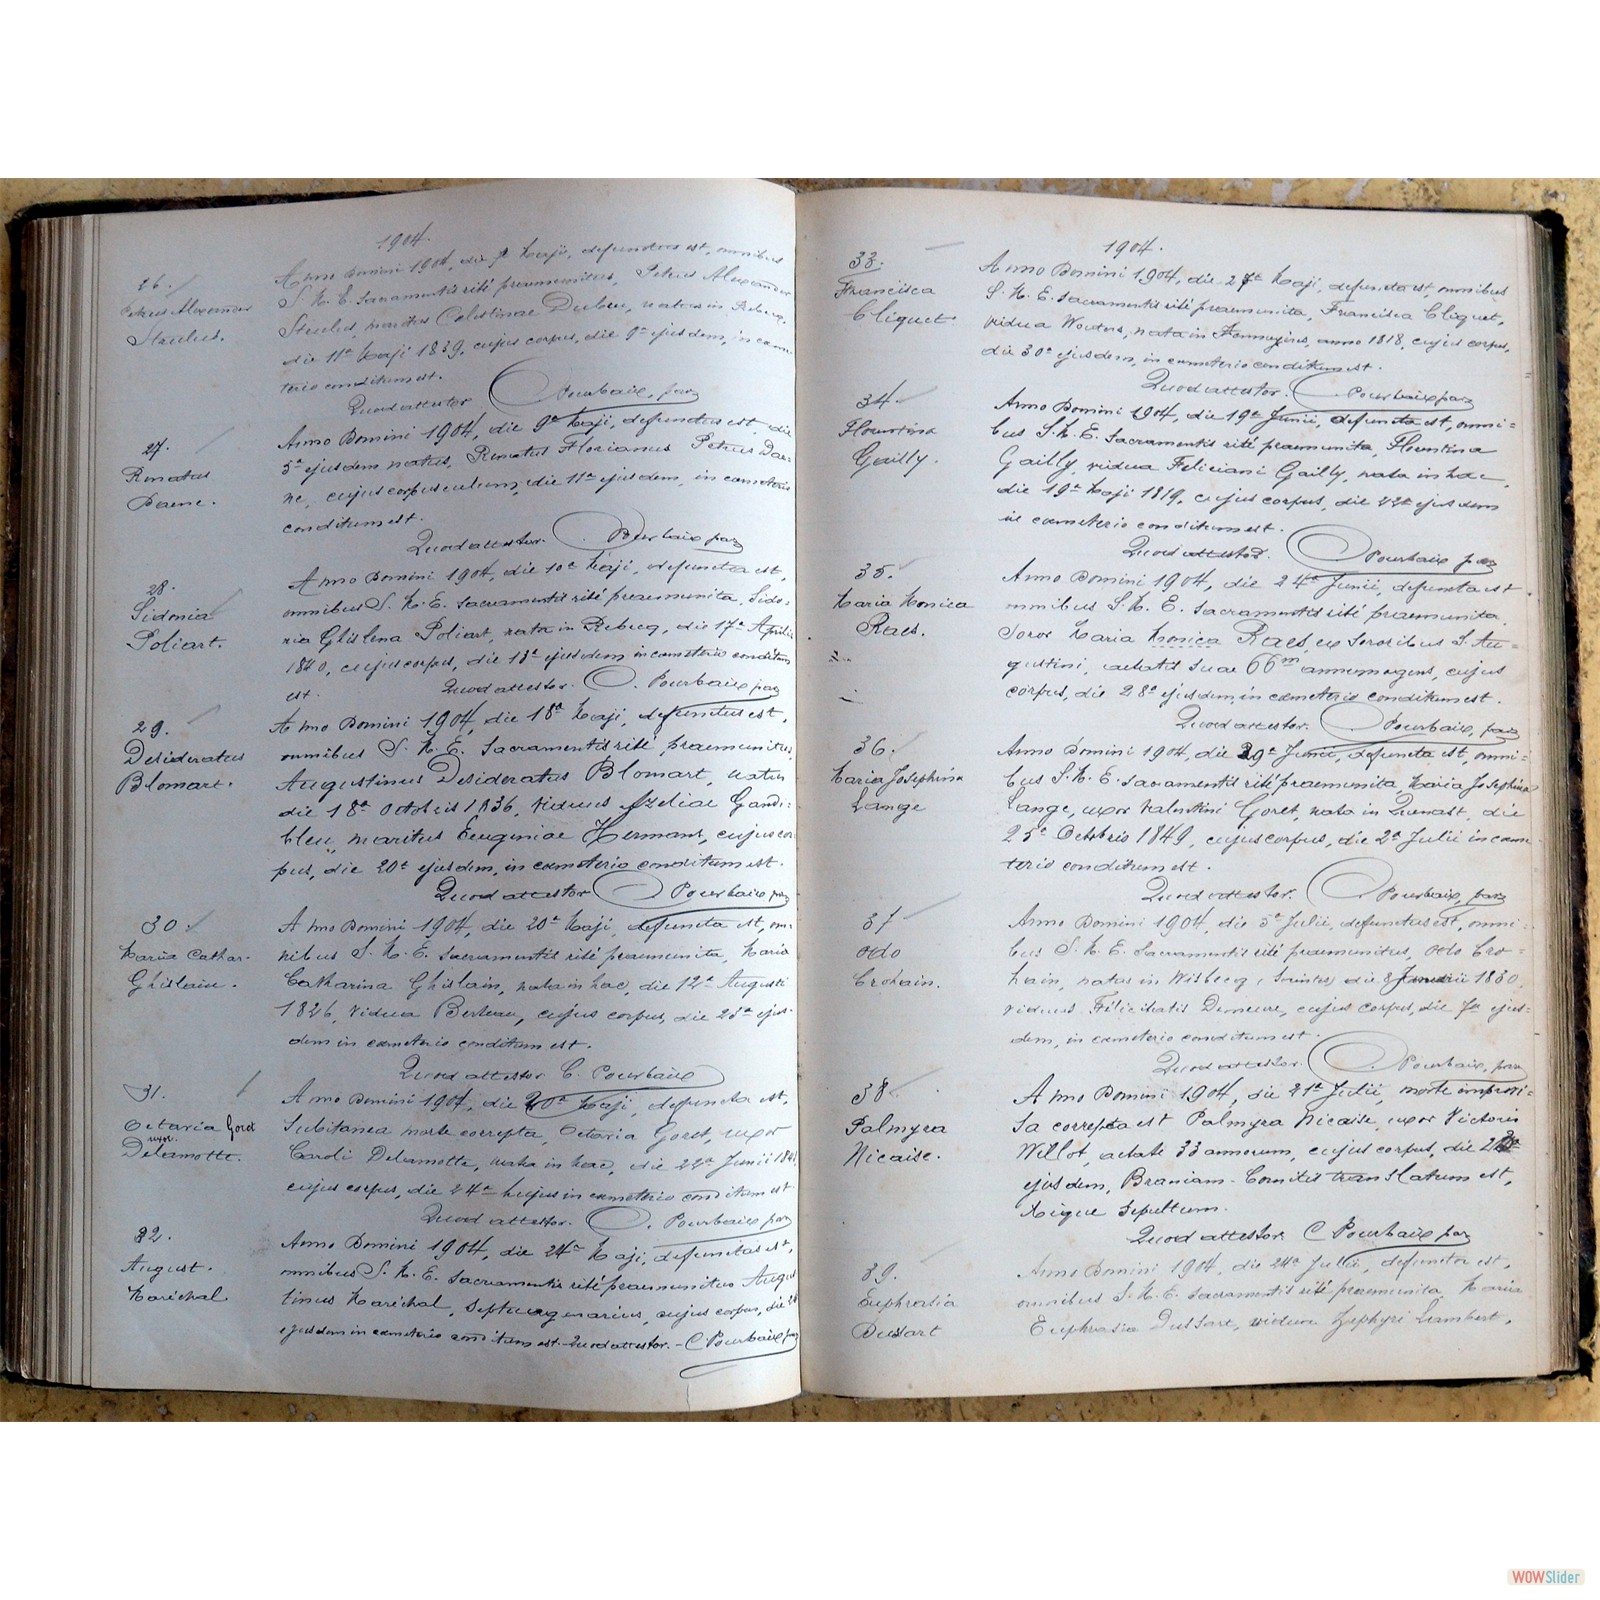 1904.
26.
Petrus Alexander
Strulus.
Anno Domini 1904, die 7a Maji, defunctus est, omnibus
S. M. E. Sacramentis rité praemunitus, Petrus Alexander
Strulus, maritus Celestinae Dubru, natus in Rebecq,
die 11a Maji 1839, cujus corpus, die 9a ejusdem, in cæme-
terio conditum est.
Quod attestor C. Pourbaix, par
27.
Renatus
Daene.
Anno Domini 1904, die 9a Maji, defunctus est, die
5a ejusdem natus, Renatus Florianus Petrus Dae-
ne, cujus corpusculum, die 11a ejusdem, in cæmeterio
conditum est.
Quod attestor. C. Pourbaix par
28.
Sidonia
Poliart.
Anno Domini 1904, die 10a Maji, defuncta est,
omnibus S. M. E. Sacramentis rité praemunita, Sido-
nia Ghislena Poliart, nata in Rebecq, die 17a Aprilis
1840, cujus corpus, die 13a ejusdem in cæmeterio conditum
est. Quod attestor. C. Pourbaix par
29.
Desideratus
Blomart.
Anno Domini 1904, die 18a Maji, defunctus est,
omnibus S. M. E. Sacramentis rité praemunitus,
Augustinus Desideratus Blomart, natus
die 18a Octobris 1836, viduus Azeliae Gandi-
bleu, maritus Eugeniae Hermant, cujus cor-
pus, die 20a ejusdem, in cæmeterio conditum est.
Quod attestor C. Pourbaix par
30.
Maria Cathar.
Ghislain.
Anno Domini 1904, die 20a Maji, defuncta est, om-
nibus S. M. E. Sacramentis rité praemunita, Maria
Catharina Ghislain, nata in hac, die 12a Augusti
1826, vidua Berteau, cujus corpus, die 23a ejus-
dem in cæmeterio conditum est.
Quod attestor C. Pourbaix
31.
Octavia Goret
uxor.
Delamotte.
Anno Domini 1904, die 20a Maji, defuncta est,
Subitanea morte correpta, Octavia Goret, uxor
Caroli Delamotte, nata in hac, die 22a Junii 184
cujus corpus, die 24a hujus in cæmeterio conditum est
Quod attestor. C. Pourbaix par
32.
August.
Maréchal
Anno Domini 1904, die 24a Maji, defunctus est,
omnibus S. M. E. Sacramentis rité praemunitus Augus
tinus Maréchal, Septuagenarius, cujus corpus, die 28
ejusdem in cæmeterio conditum est. Quod attestor. - C Pourbaix par
1904.
33.
Francisca
Cliquet.
Anno Domini 1904, die 27a Maji, defuncta est, omnibus
S. M. E. Sacramentis rité praemunita, Francisca Cliquet,
vidua Wouters, nata in anno 1818, cujus corpus,
die 30a ejusdem, in cæmeterio conditum est.
Quod attestor. C Pourbaix par
34.
Florentina
Gailly.
Anno Domini 1904, die 19a Junii, defuncta est, omni=
bus S. M. E. Sacramentis rité praemunita, Florentina
Gailly, vidua Feliciani Gailly, nata in hac,
die 19a Maji 1819, cujus corpus, die 22a ejusdem
in cæmeterio conditum est.
Quod attestor. C Pourbaix par
35.
Maria Monica
Raes.
Anno Domini 1904, die 24a Junii, defuncta est
omnibus S. M. E. Sacramentis rité praemunita,
Soror Maria Monica Raes, ex Sororibus S. Au=
gustini, aetatis suae 66m annum agens, cujus
corpus, die 28a ejusdem, in cæmeterio conditum est.
Quod attestor. C Pourbaix, par
36.
Maria Josephina
Lange
Anno Domini 1904, die 29a Junii, defuncta est, omni=
bus S. M. E. Sacramentis rité praemunita Maria Josephina
Lange, uxor Valentini Goret, nata in Quenast, die
25a Octobris 1849, cujus corpus, die 2a Julii in cæme
terio conditum est.
Quod attestor. C Pourbaix, par
37
Odo
Crohain.
Anno Domini 1904, die 5a Julii, defunctus est, omni=
bus S. M. E. Sacramentis rité praemunitus, Odo Cro=
hain, natus in Wisbecq (Saintes) die 8 1830,
viduus Félicitatis Demeure, cujus corpus, die 7a ejus=
dem, in cæmeterio conditum est.
Quod attestor. C Pourbaix, par
38
Palmyra
Nicaise.
Anno Domini 1904, die 21a Julii, morte improvi=
sa correpta est Palmyra Nicaise, uxor Victoris
Willot, aetate 33 annorum, cujus corpus, die
ejusdem, Braniam-Comitis translatum est,
sepultum.
Quod attestor. C Pourbaix par
39.
Euphrasia
Dussart
Anno Domini 1904, die 24a Julii, defuncta est,
omnibus S. M. E. Sacramentis rité praemunita, Maria
Euphrasia Dussart, vidua Zephyri Lambert,
WOWSlider